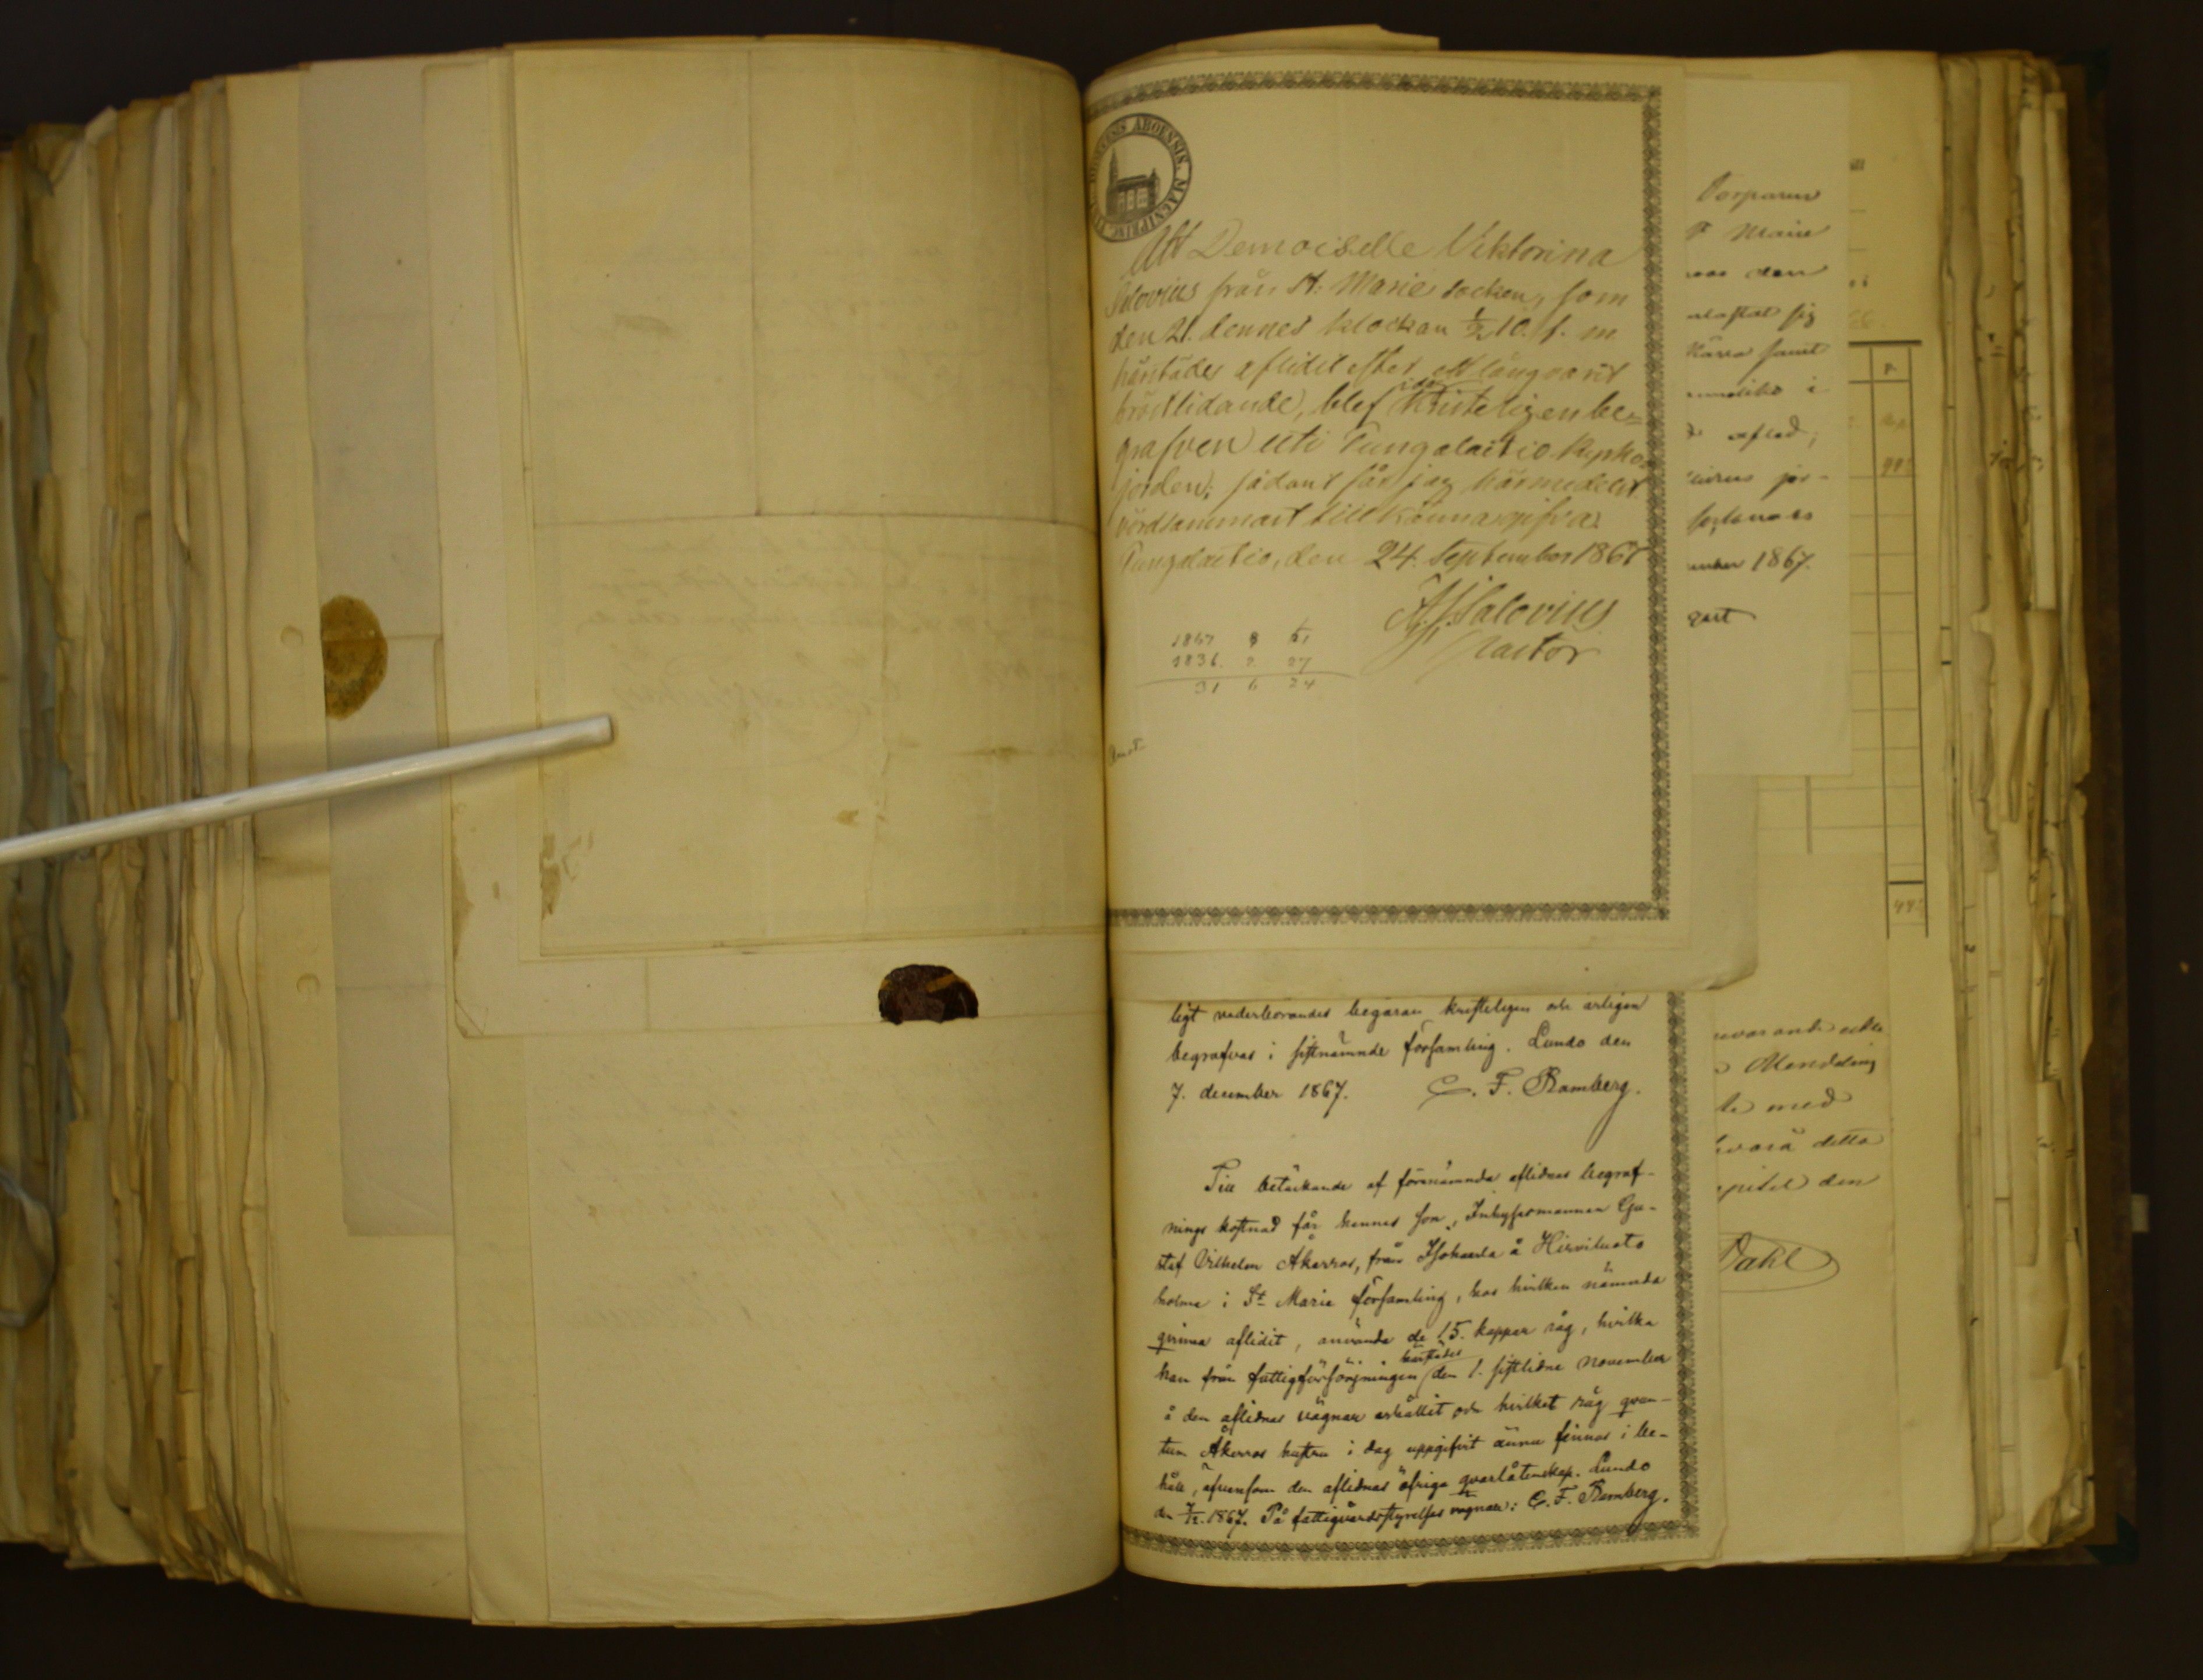 ABOENSIS MAGNI PRINC
Att Demoiselle Viktorina
Salovius från St: Marie socken, som
den 21. dennes klockan ½ 10. f. m
härstädes aflidit efter ett långvarit
bröstlidande, blef idag kristeligen be-
grafven uti Pungalaitio kyrko-
jorden; sådant får jag härmedelst
vördsammast tillkännagifva.
Pungalaitio, den 24. September 1867
A. J. Salovius
Pastor
1867 8 21
1836. 2. 27
31 6 24
ligt vederbörandes begäran kristeligen och ärligen
begrafvas i sistnämnde församling. Lundo den
7. december 1867. C. F. Ramberg.
Till betäckande af förenämnda aflidnas begraf-
nings kostnad får hennes son, Inhysesmannen Gu-
staf Vilhelm Åkerros, från Isokaila å Hirviluoto
holme i St Marie församling, hos hvilken nämnda
qvinna aflidit, använda de 15. kappar råg, hvilka
han från fattigförsörjningen härstädes den 1. sistlidne november
å den aflidnas vägnar erhållit och hvilket råg qvan-
tum Åkerros hustru i dag uppgifvit ännu finnas i be-
håll, äfvensom den aflidnas öfriga qvarlåtenskap. Lundo
den 7/12. 1867. På fattigvårdsstyrelses vägnar: C. F. Ramberg.
Marie
den
sig
samt
i
aflad;
1867.
med
detta
den
Dahl